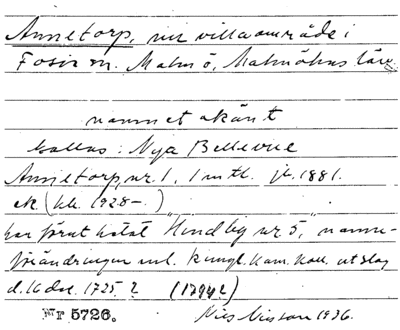 Annetorp, nu villaområde i
Fosie sn. Malmö, Malmöhus län
namnet okänt
kallas: Nya Bellevue
Annetorp, nr 1, 1 mtl. jb. 1881.
ek. (bl. 1928-.)
har förut hetat "Hindby nr 5," namn-
förändringen enl. kungl. kam. koll. utslag
d. 16 dec. 1725? (1794?)
Nr 5726. Nils Nilsson 1936.